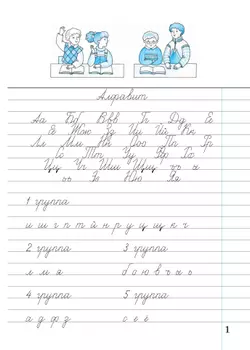 Алфавит
Аа Бб Вв Гг Дд Ее
Ёё Жж Зз Ии Йй Кк
Лл Мм Нн Оо Пп Рр
Сс Тт Уу Фф Хх
Цц Чч Шш Щщ ъ ы
ь Ээ Юю Яя
1 группа
и ш г п т й н р у ц щ к ч
2 группа 3 группа
л м я б ю в ъ ы ь
4 группа 5 группа
а д ф з о с е
1